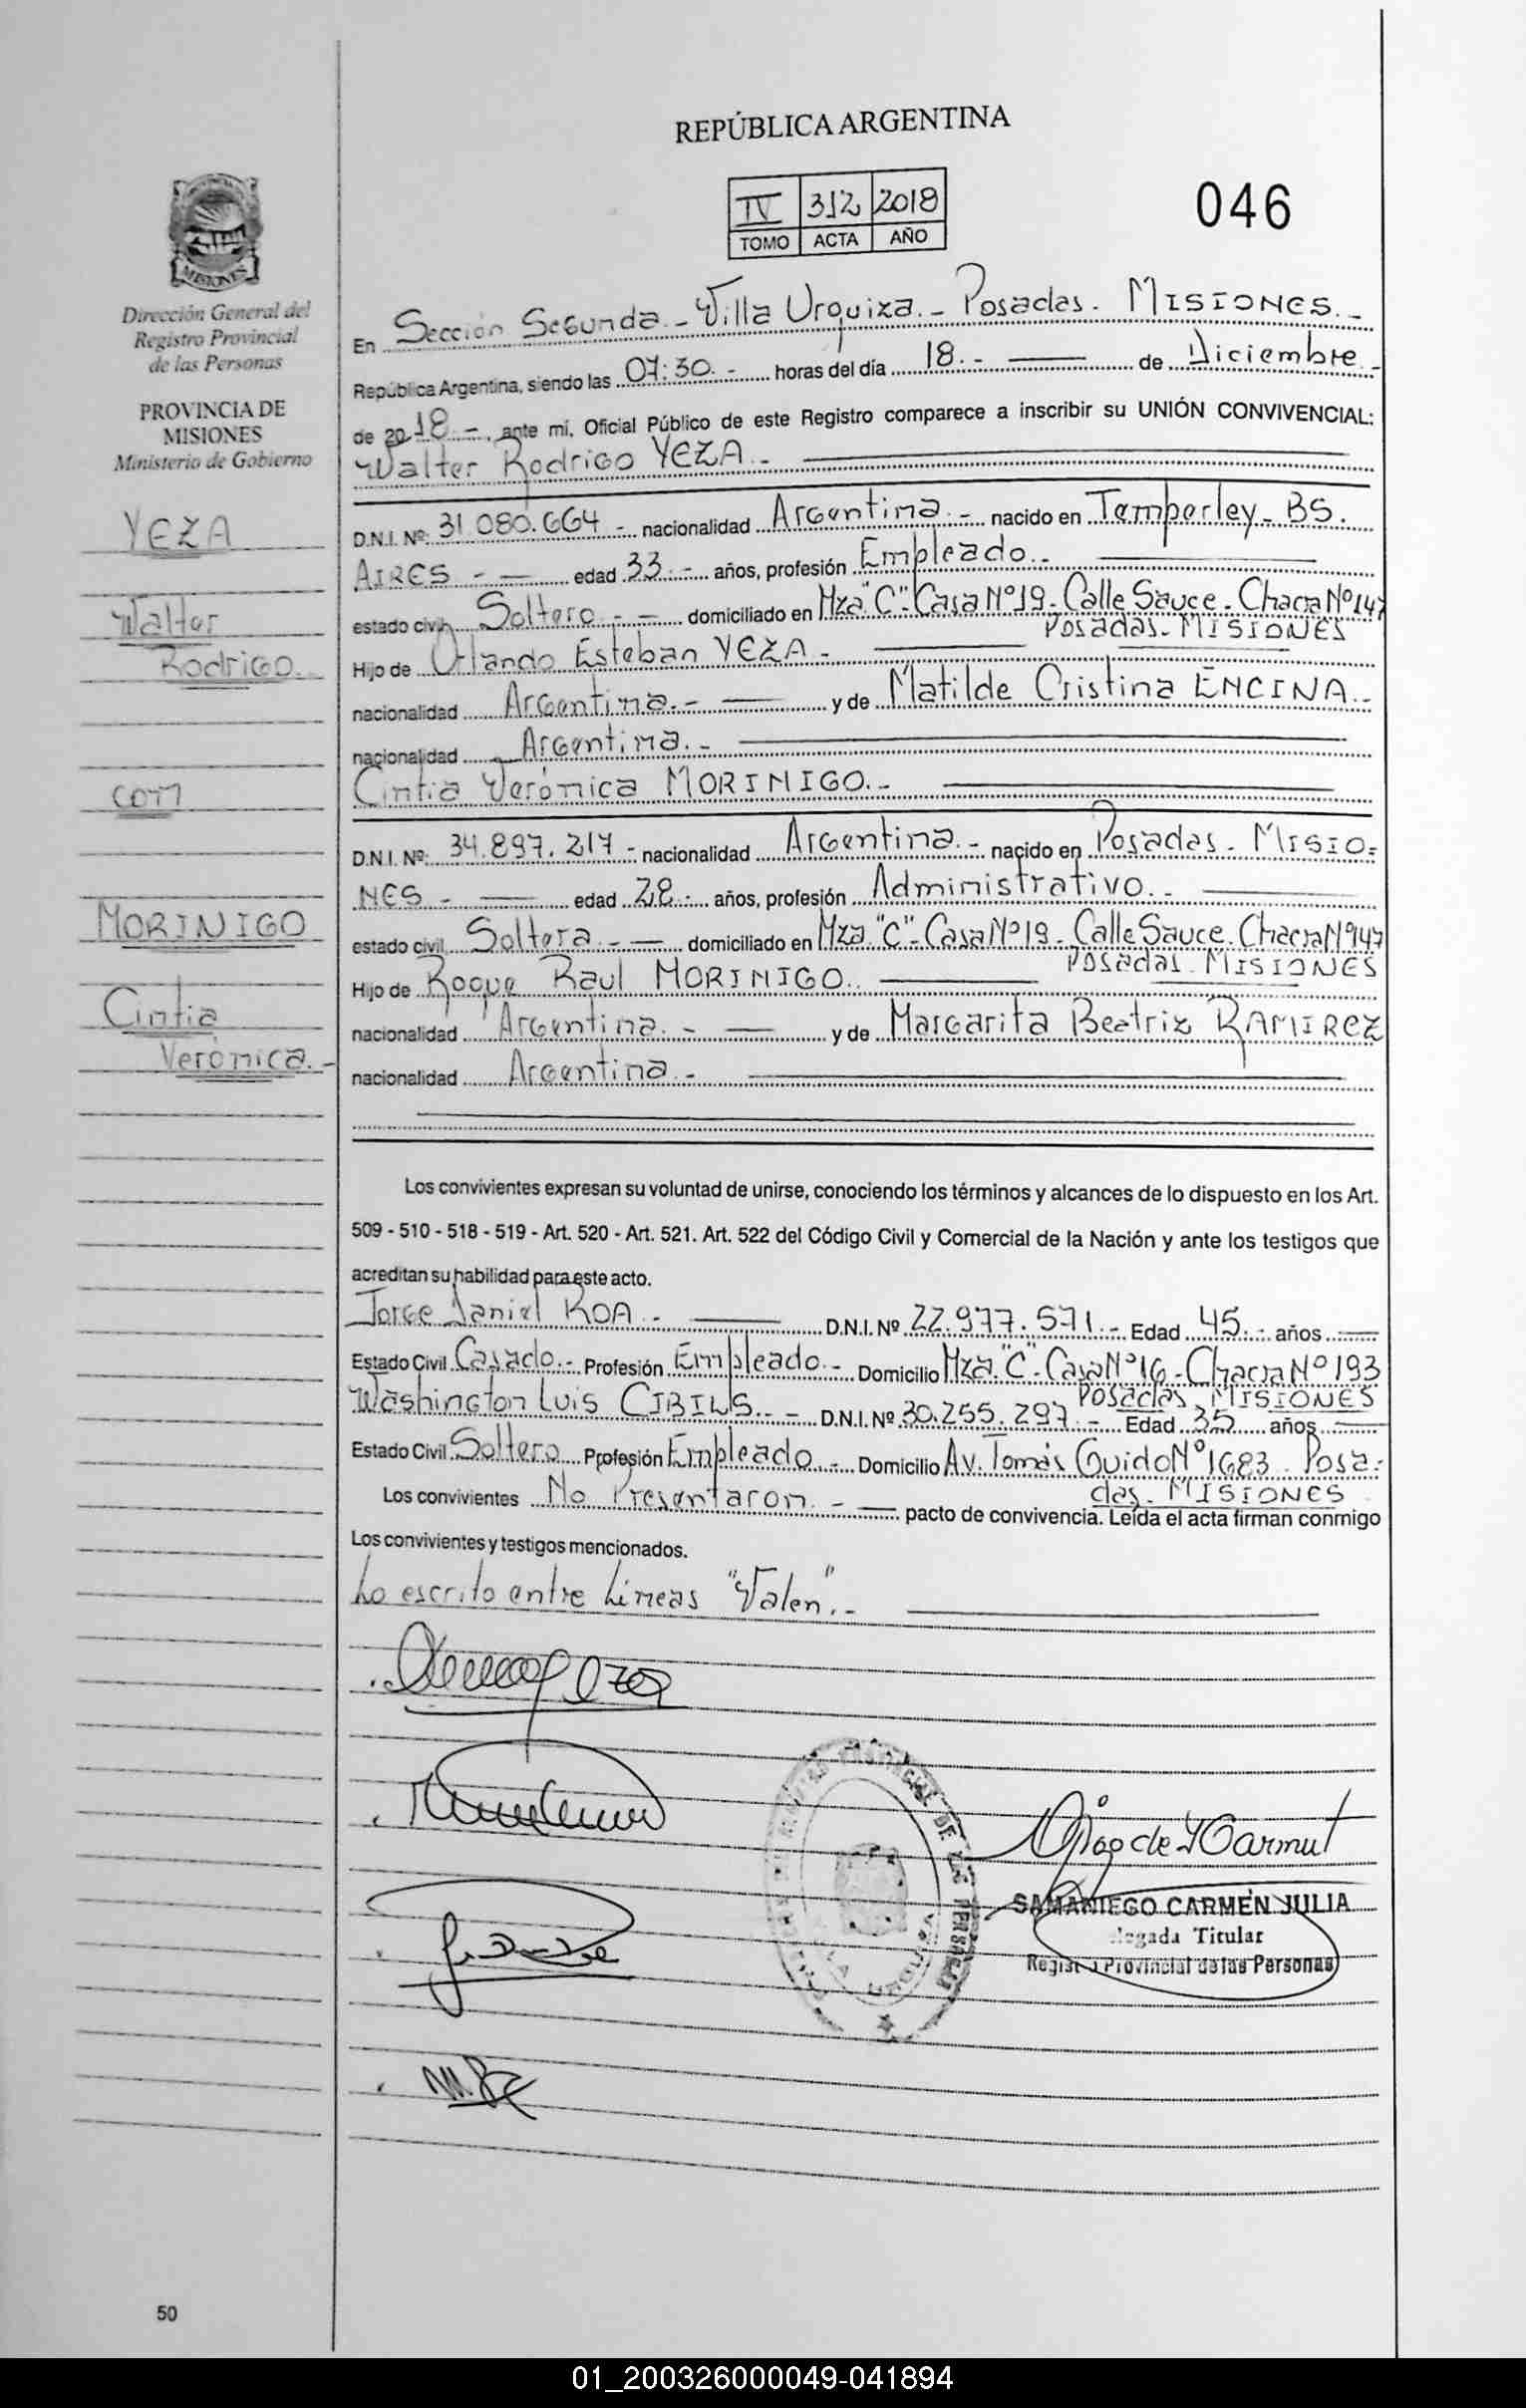 REPÚBLICA ARGENTINA
IV 312 2018
TOMO ACTA AÑO
046
MISIONES
Dirección General del
Registro Provincial
de las Personas
PROVINCIA DE
MISIONES
Ministerio de Gobierno
YEZA
Walter
Rodrigo
con
MORINIGO
Cintia
Verónica.-
50
En Sección Segunda.- Villa Urquiza.- Posadas. MISIONES.-
República Argentina, siendo las 07:30.- horas del día 18.- de Diciembre.-
de 2018.-, ante mí, Oficial Público de este Registro comparece a inscribir su UNIÓN CONVIVENCIAL:
Walter Rodrigo YEZA.-
D.N.I. Nº: 31.080.664 - nacionalidad Argentina.- nacido en Temperley - BS.
AIRES - edad 33.- años, profesión Empleado.-
estado civil Soltero.- domiciliado en Mza "C"- Casa Nº19- Calle Sauce.- Chacra Nº147
Posadas- MISIONES
Hijo de Orlando Esteban YEZA.-
nacionalidad Argentina.- y de Matilde Cristina ENCINA.-
nacionalidad Argentina.-
Cintia Verónica MORINIGO.-
D.N.I. Nº: 34.897.217 - nacionalidad Argentina.- nacido en Posadas- MISIO-
NES - edad 28.- años, profesión Administrativo.-
estado civil Soltera.- domiciliado en Mza "C"- Casa Nº19- Calle Sauce. Chacra Nº147
Posadas- MISIONES
Hijo de Roque Raul MORINIGO.
nacionalidad Argentina.- y de Margarita Beatriz RAMIREZ
nacionalidad Argentina.-
Los convivientes expresan su voluntad de unirse, conociendo los términos y alcances de lo dispuesto en los Art.
509 - 510 - 518 - 519 - Art. 520 - Art. 521. Art. 522 del Código Civil y Comercial de la Nación y ante los testigos que
acreditan su habilidad para este acto.
Jorge Daniel ROA.- D.N.I. Nº 22.977.571.- Edad 45.- años
Estado Civil Casado.- Profesión Empleado.- Domicilio Mza. "C"- Casa Nº16- Chacra Nº193
Posadas MISIONES
Washington Luis CIBILS.- D.N.I. Nº 30.255.297.- Edad 35 años
Estado Civil Soltero Profesión Empleado.- Domicilio Av. Tomás Guido Nº1683. Posa-
das- MISIONES
Los convivientes No Presentaron.- pacto de convivencia. Leída el acta firman conmigo
Los convivientes y testigos mencionados.
Lo escrito entre Líneas "Valen".-
PROVINCIAL DE LAS PERSONAS
SAMANIEGO CARMEN JULIA
Delegada Titular
Registro Provincial de las Personas
01_200326000049-041894